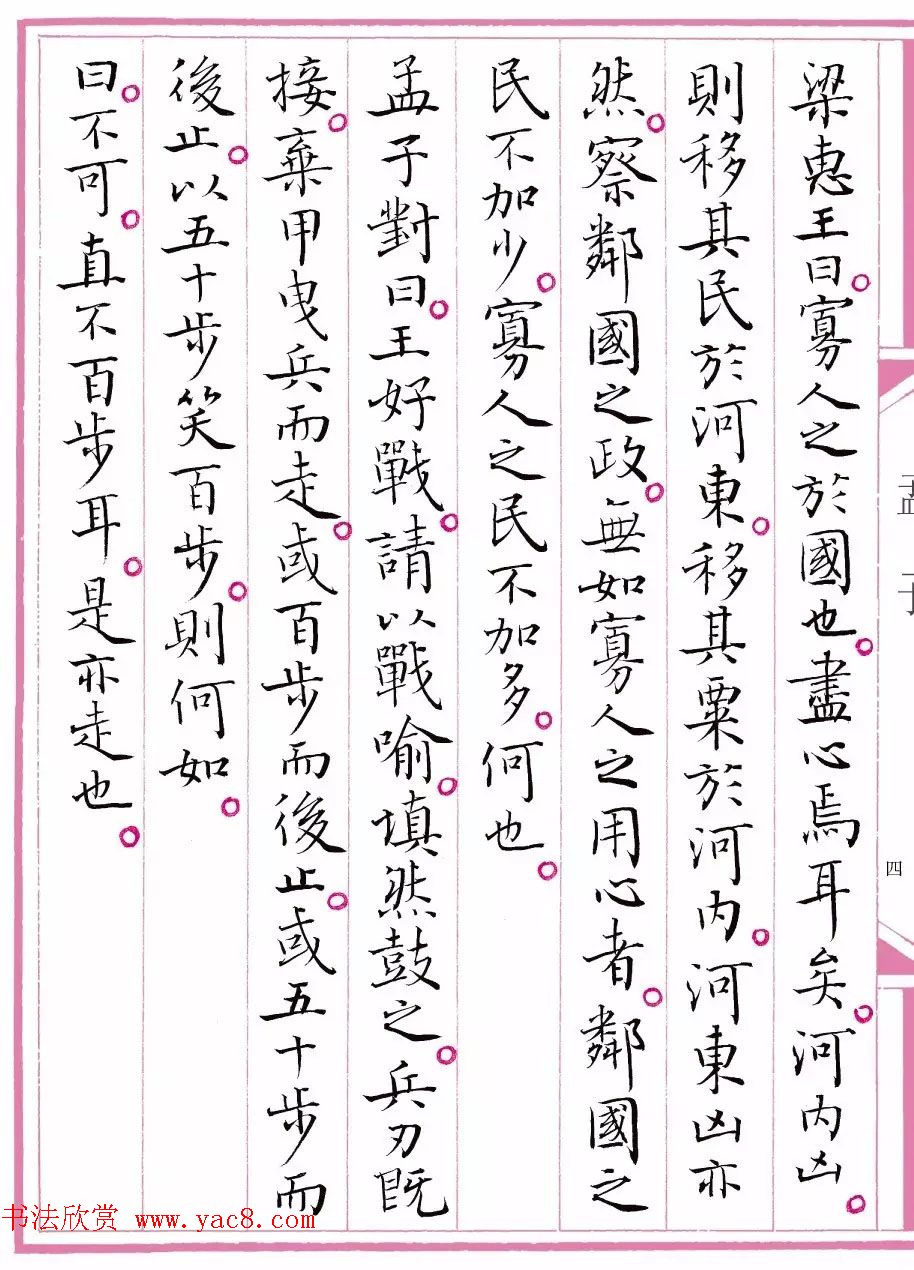 梁惠王曰。寡人之於國也。盡心焉耳矣。河内凶。
則移其民於河東。移其粟於河内。河東凶亦
然。察鄰國之政。無如寡人之用心者。鄰國之
民不加少。寡人之民不加多。何也。
孟子對曰。王好戰。請以戰喻。填然鼓之。兵刃既
接。棄甲曳兵而走。或百步而後止。或五十步而
後止。以五十步笑百步。則何如。
曰。不可。直不百步耳。是亦走也。
孟子
四
书法欣赏 www.yac8.com